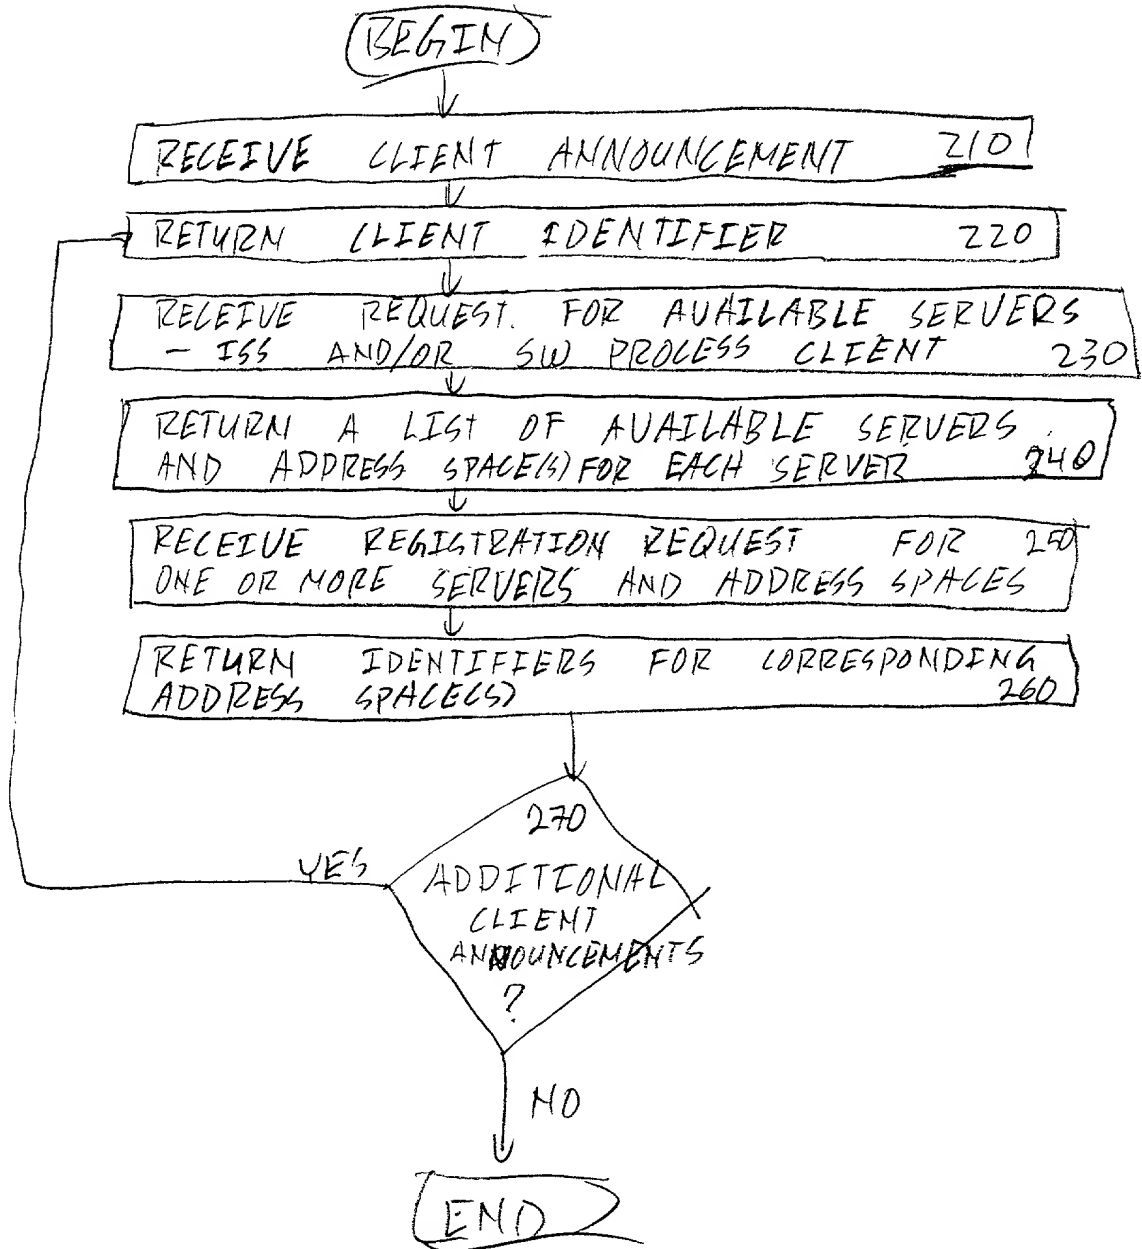 BEGIN
RECEIVE CLIENT ANNOUNCEMENT 210
RETURN CLIENT IDENTIFIER 220
RECEIVE REQUEST. FOR AVAILABLE SERVERS
- ISS AND/OR SW PROCESS CLIENT 230
RETURN A LIST OF AVAILABLE SERVERS
AND ADDRESS SPACE(S) FOR EACH SERVER 240
RECEIVE REGISTRATION REQUEST FOR 250
ONE OR MORE SERVERS AND ADDRESS SPACES
RETURN IDENTIFIERS FOR CORRESPONDING
ADDRESS SPACE(S) 260
270
YES
ADDITIONAL
CLIENT
ANNOUNCEMENTS
?
NO
END